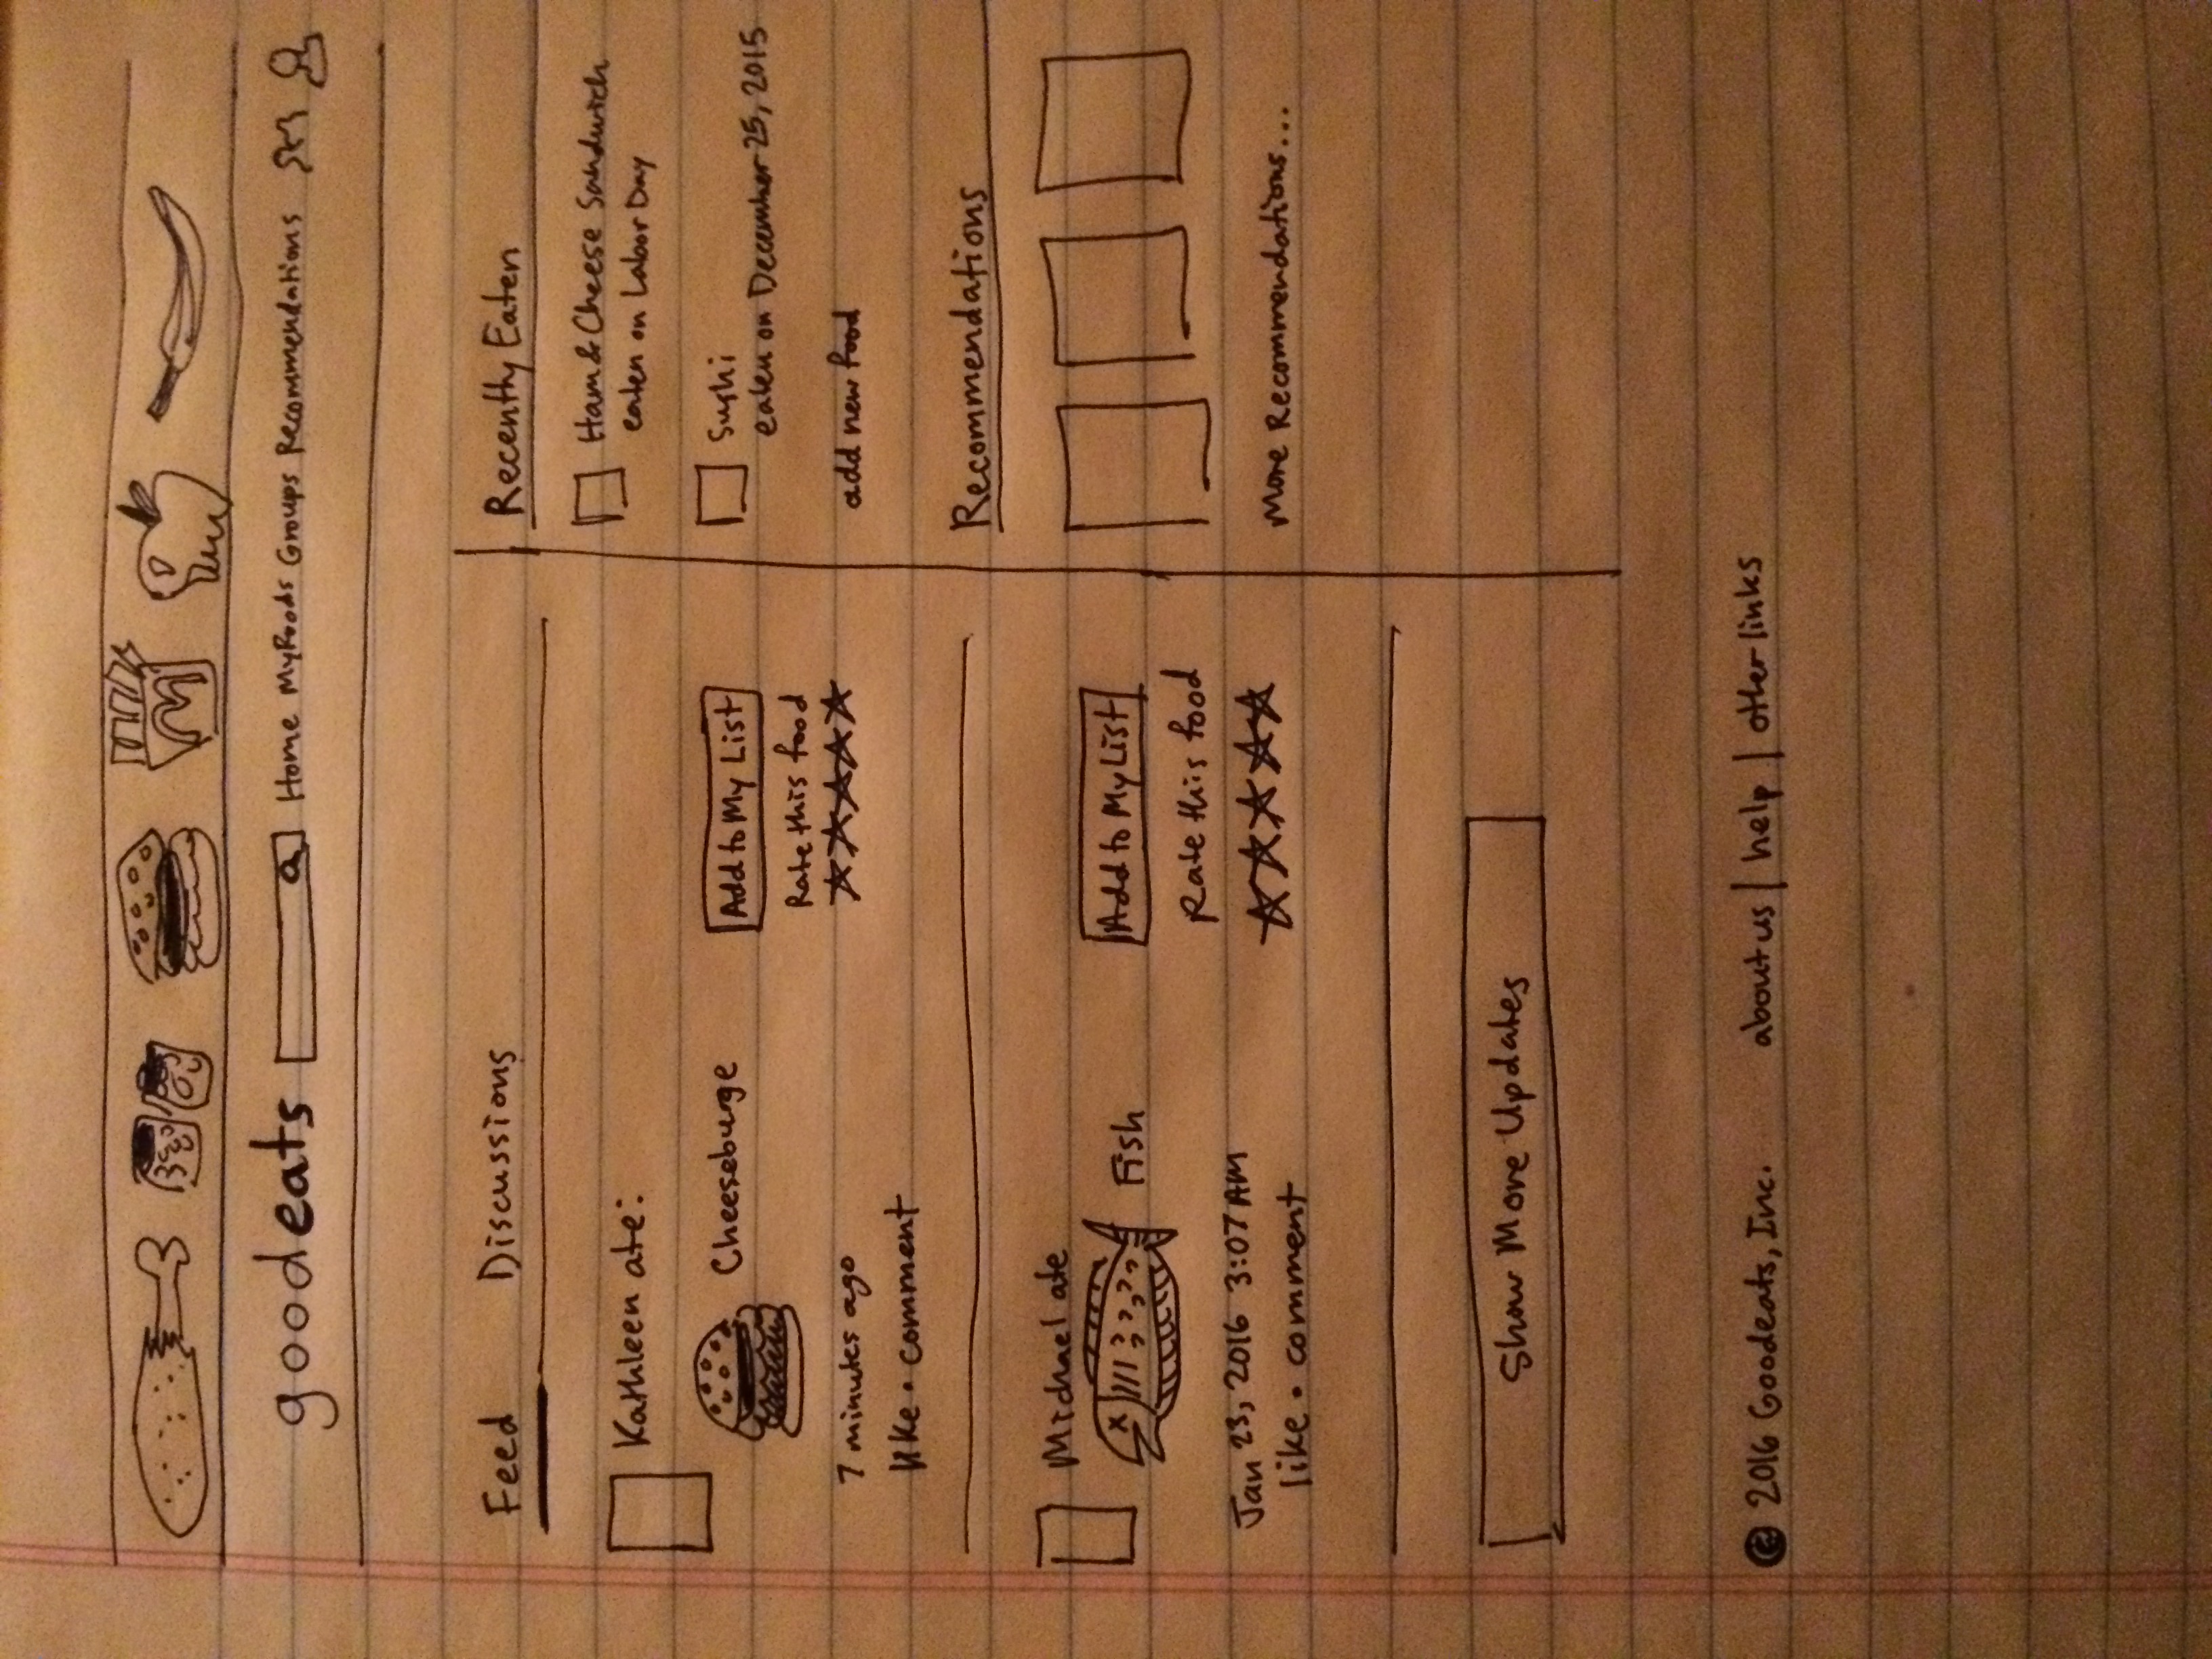 goodeats Home MyFoods Groups Recommendations
Feed Discussions
Kathleen ate:
Cheeseburge
Add to My List
Rate this food
7 minutes ago
like • comment
Michael ate
Fish
Add to My List
Rate this food
Jan 23, 2016 3:07 AM
like • comment
Show More Updates
Recently Eaten
Ham & Cheese Sandwich
eaten on Labor Day
Sushi
eaten on December 25, 2015
add new food
Recommendations
More Recommendations...
© 2016 Goodeats, Inc. about us | help | other links